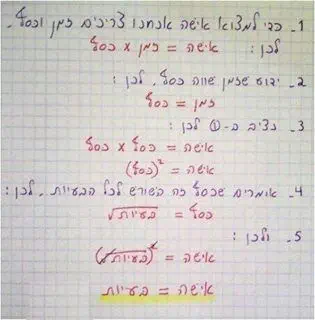 1- כדי למצוא אישה אנחנו צריכים זמן וכסף.
לכן : אישה = זמן x כסף
2- ידוע שזמן שווה כסף. לכן :
זמן = כסף
3- נציב ב-① לכן :
אישה = כסף x כסף
אישה = (כסף)²
4- אומרים שכסף זה השורש לכל הבעיות. לכן :
כסף = √בעיות
5- ולכן :
אישה = (√בעיות)²
אישה = בעיות